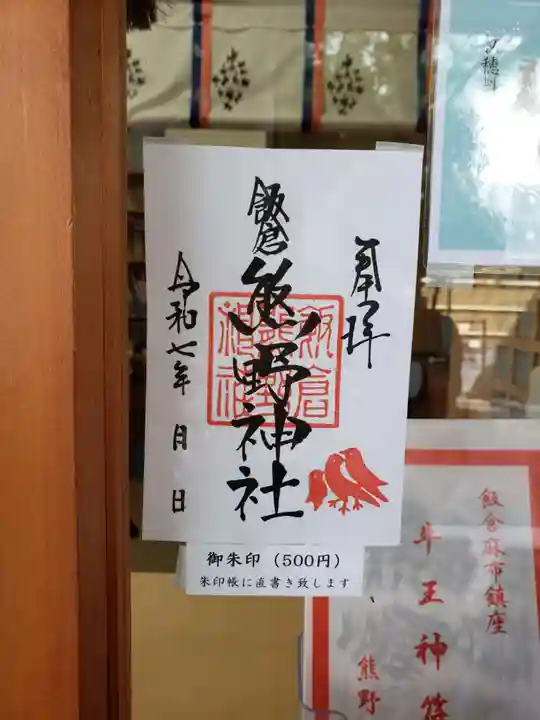 奉拝
飯倉
熊野神社
飯倉
熊野
神社
令和七年 月 日
御朱印（500円）
朱印帳に直書き致します
飯倉麻布鎮座
牛王神符
熊野